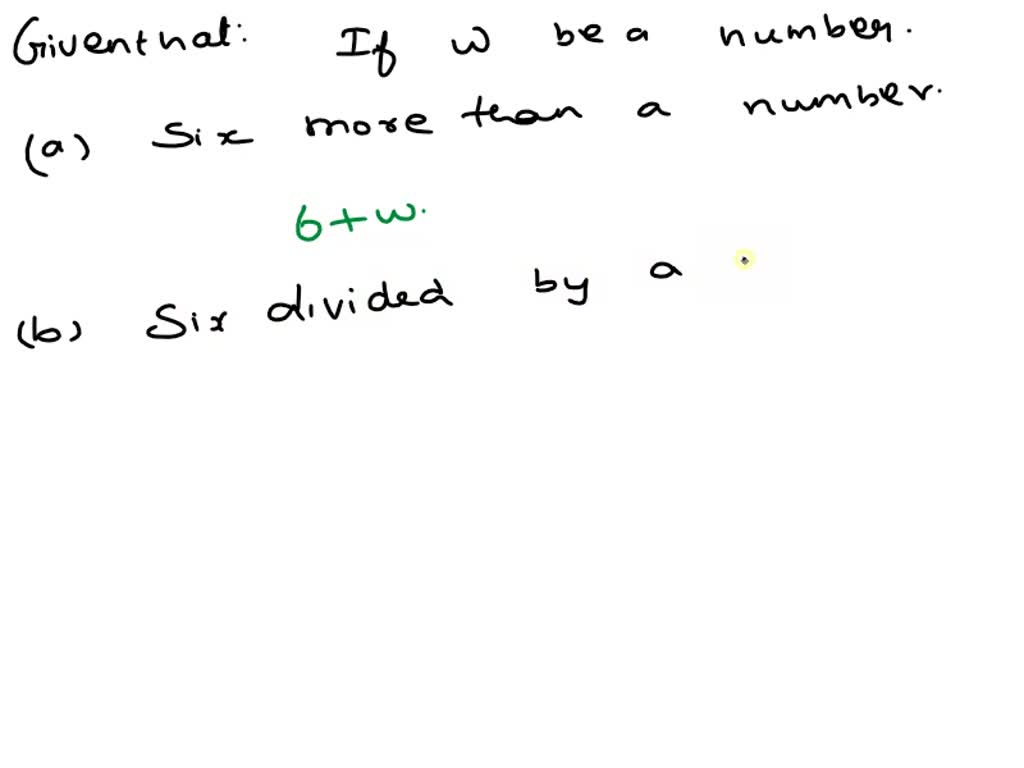 Giventhat: If w be a number.
(a) Six more than a number.
6+w.
(b) Six divided by a